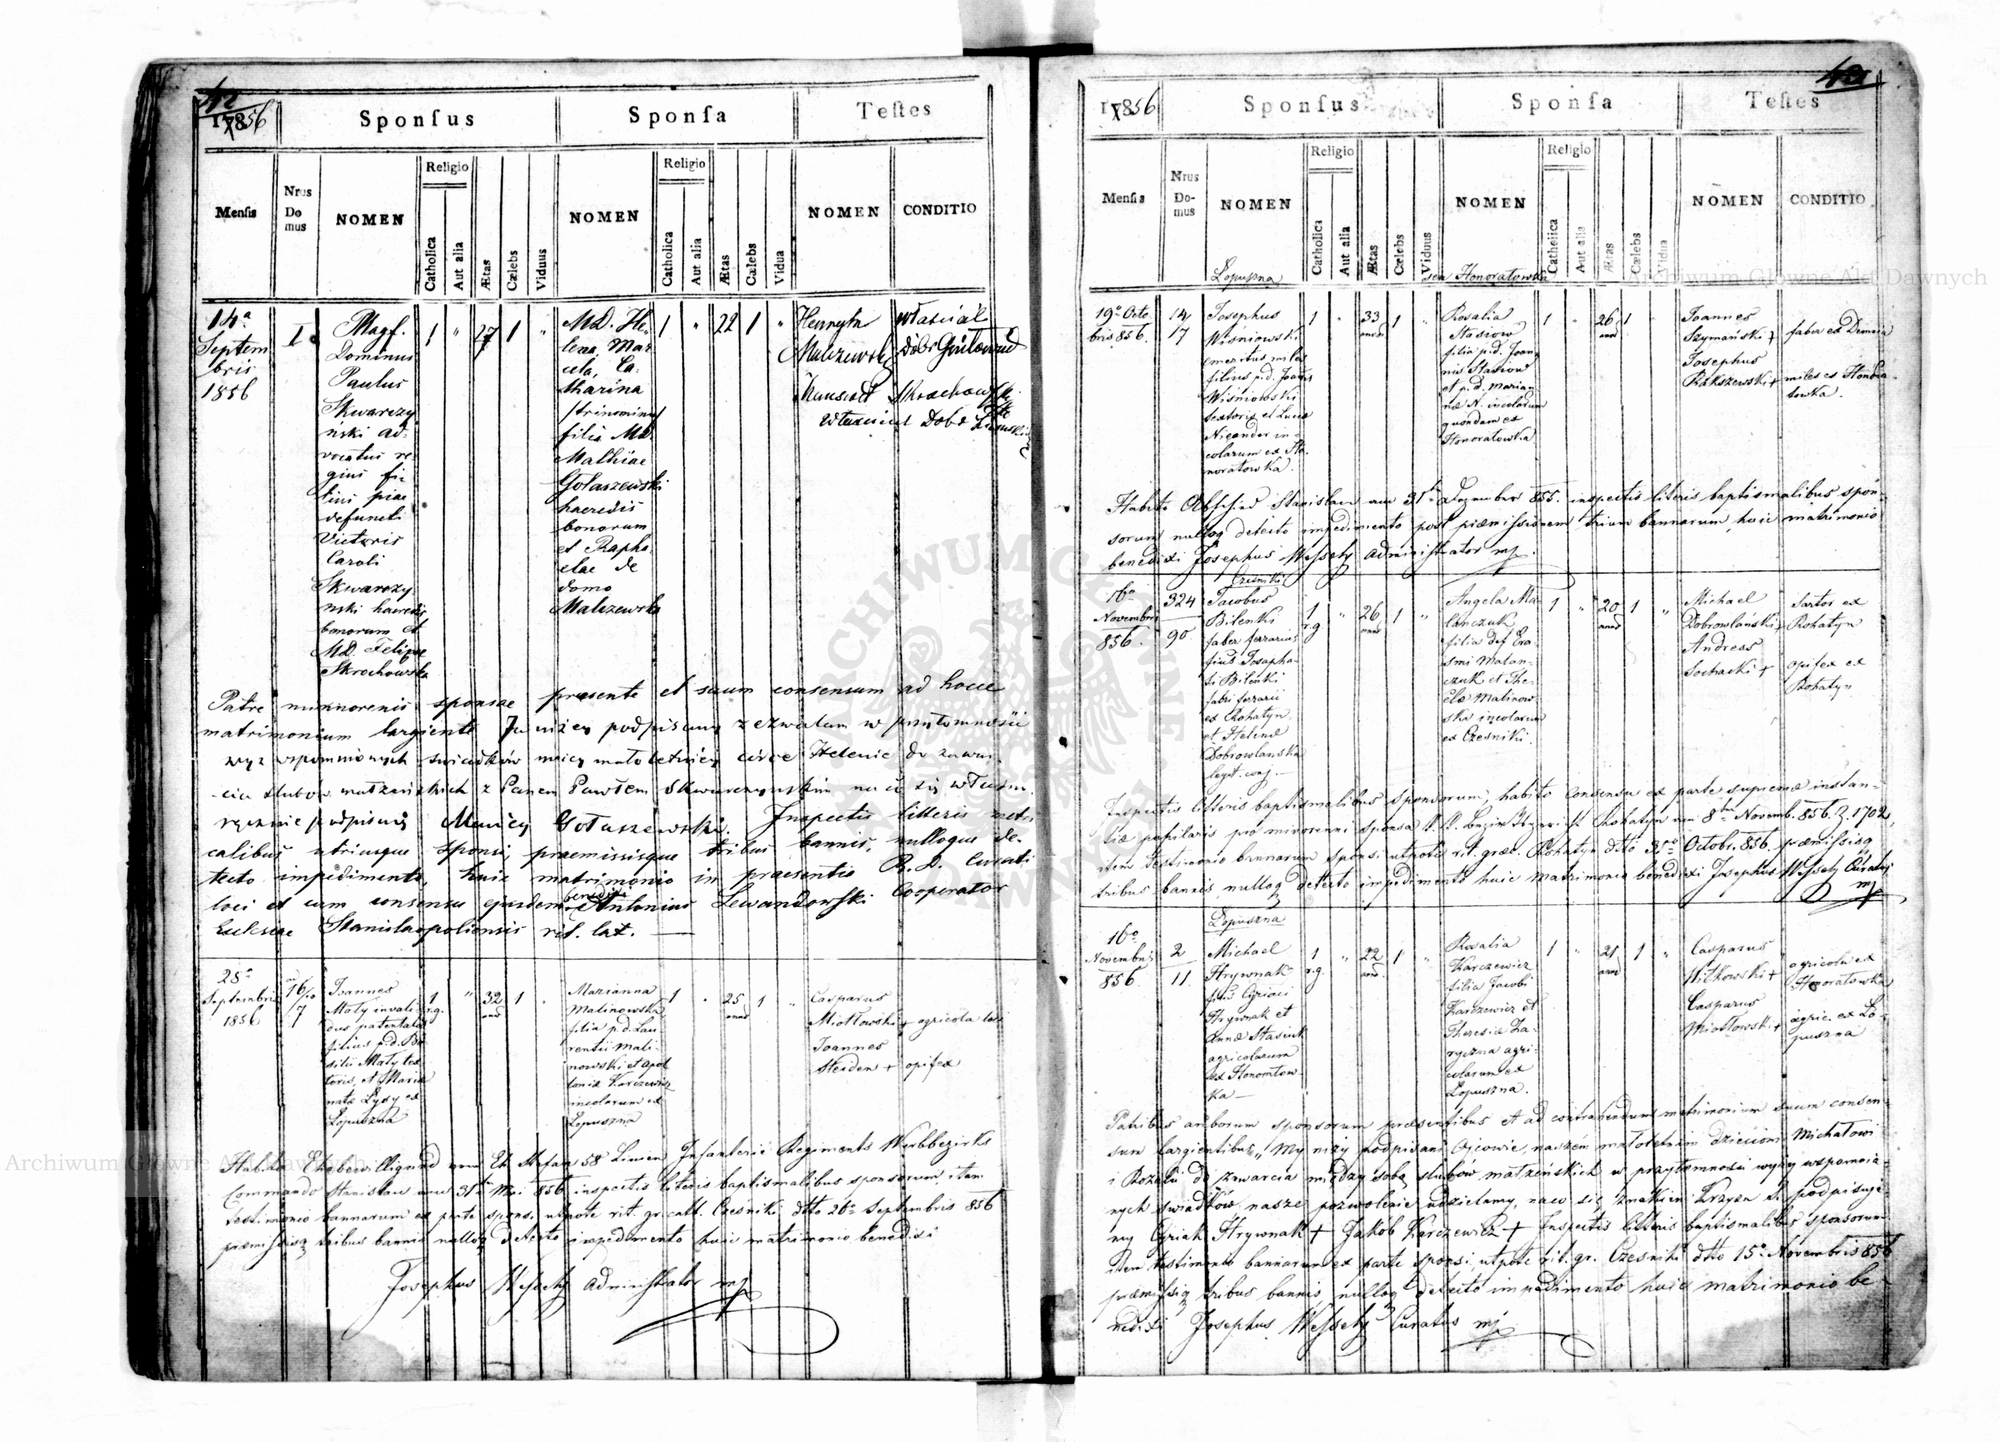 42
1856
Sponsus
Sponsa
Testes
Mensis
Nrus Do mus
NOMEN
Religio
Catholica
Aut alia
Ætas
Cælebs
Viduus
NOMEN
Religio
Catholica
Aut alia
Ætas
Cælebs
Vidua
NOMEN
CONDITIO
14a
Septem
bris
1856
I
Magf.
Dominus
Paulus
Skwarczy
ński ad-
vocatus re
gius fi-
lius piae
defuncti
Victoris
Caroli
Skwarczy
nski haeredis
bonorum et
MD. Felipe
Skrochowska
1
"
27
1
"
MD. He-
lena, Mar
cela, Ca-
tharina
trinominis
filia MD.
Mathiae
Gołaszewski
haeredis
bonorum
et Rapha
elae de
domo
Malczewska
1
"
22
1
"
Henryk
Malczewski
właściciel
dóbr
Skrochowski
właściciel Dobr
Patre minorenis sponsae presente et suum consensum ad hocce
matrimonium largiente Ja niżej podpisany zezwalam w przytomności
wyż wspomnionych świadków mojej małoletniej córce Helenie do zawar-
cia ślubów małżeńskich z Panem Pawłem Skwarczyńskim na co się własno
ręcznie podpisuję Maciej Gołaszewski. Inspectis litteris metri
calibus utriusque sponsi, praemissisque tribus bannis, nulloque de-
tecto impedimento, huic matrimonio in praesentia R. D. Curati
loci et cum consensu ejusdem benedixi Antonius Lewandowski Cooperator
Ecclesiae Stanislaopoliensis rit. lat.
28a
Septembris
1856
7
Joannes
Mały invali
dus patentalis
filius p.d. Ba
silii Mały tex
toris, et Maria
natæ Łysy ex
Łopuszna
1
r.g.
"
32
1
"
Marianna
Malinowska
filia p.d. Lau
rentii Mali-
nowski et Apol
loniæ Karczewicz
incolarum ex
Łopuszna
1
"
25
1
"
Casparus
Miotłowski + agricola loci
Joannes
Steiden + opifex
Commando Stanislau am 31t Mai 856 inspectis literis baptismalibus sponsorum item
testimonio bannorum ex parte sponsi, utpote rit. gr. cath. Czesniki dtto 26a Septembris 856
præmissisq tribus bannis nulloq detecto impedimento huic matrimonio benedixi
Josephus Wessely administrator mp
1856
Sponsus
Sponsa
Testes
Mensis
Nrus Do- mus
NOMEN
Religio
Catholica
Aut alia
Ætas
Cælebs
Viduus
NOMEN
Religio
Catholica
Aut alia
Ætas
Cælebs
Vidua
NOMEN
CONDITIO
Łopuszna
seu Honoratowka
19a Octo
bris 856.
14
17
Josephus
Wiśniowski
emeritus miles
filius p.d. Joannis
Wiśniowski
textoris et Luciæ
Nicander in-
colarum ex Ho-
noratowka.
1
"
33
1
"
Rosalia
Stasiow
filia p.d. Joan
nis Stasiow
et p.d. Marian
næ N. incolarum
quondam ex
Honoratowka
1
"
26
1
"
Joannes
Szymański +
Josephus
Rakszewski +
faber ex Demnia
miles ex Honora-
towka.
Habito Abschied Stanislau am 31t Dezember 855. inspectis literis baptismalibus spon-
sorum nulloq detecto impedimento post præmissionem trium bannorum, huic matrimonio
benedixi Josephus Wessely administrator mp.
Czesniki
16a
Novembris
856.
324
90
Jacobus
Bilenki
faber ferrarius
filius Josapha-
ti Bilenki
fabri ferrarii
ex Rohatyn
et Helenæ
Dobrowlanska
1
r.g
"
26
1
"
Angela Ma-
lanczuk
filia def Era
smi Malan-
czuk et The-
clæ Malinow-
ska incolarum
ex Czesniki
1
"
20
1
"
Michael
Dobrowlański
Andreas
Sochacki +
Sartor ex
Rohatyn
opifex ex
Rohatyn
Inspectis litteris baptismalibus sponsorum, habito Consensu ex parte supremæ instan-
tiæ pupilaris pro minorenni sponsa Rohatyn am 8ten Novemb. 856. Z. 1702,
item testimonio bannorum sponsi, utpote rit. græc. Rohatyn dtto Octobr. 856. præmissisq
tribus bannis nulloq detecto impedimento huic matrimonio benedixi Josephus Wessely Curatus
mp
Łopuszna
16a
Novembris
856
2
11.
Michael
Hrywnak
filius Cyriaci
Hrywnak et
Annæ Stasiuk
agricolarum
ex Honoratow-
ka
1
r.g.
"
22
1
"
Rosalia
Karczewicz
filia Jacobi
Karczewicz et
Theresiæ Za-
ryczna agri-
colarum ex
Łopuszna.
1
"
21
1
"
Casparus
Witkowski +
Casparus
Miotłowski +
agricola ex
Honoratowka
agric. ex Ło-
puszna
Patribus amborum sponsorum præsentibus et ad contrahendum matrimonium suum consen-
sum largientibus, My niży podpisani Ojcowie, naszém małoletnim dzieciom Michałowi
i Rozalii do zawarcia między sobą ślubów małżeńskich w przytomności wyży wspomnia-
nych świadków nasze pozwolenie udzielamy, na co się znakiem Krzyża S. podpisuje-
my Cyriak Hrywnak + Jakób Karczewicz + Inspectis litteris baptismalibus sponsorum
item testimonio bannorum ex parte sponsi, utpote rit. gr. Czesniki dtto 15a Novembris 856
præmissisq tribus bannis nulloq detecto impedimento huic matrimonio be-
nedixi Josephus Wessely Curatus mp
Archiwum Główne Akt Dawnych
Archiwum Główne Akt Dawnych
ARCHIWUM GŁÓWNE AKT DAWNYCH W WARSZAWIE